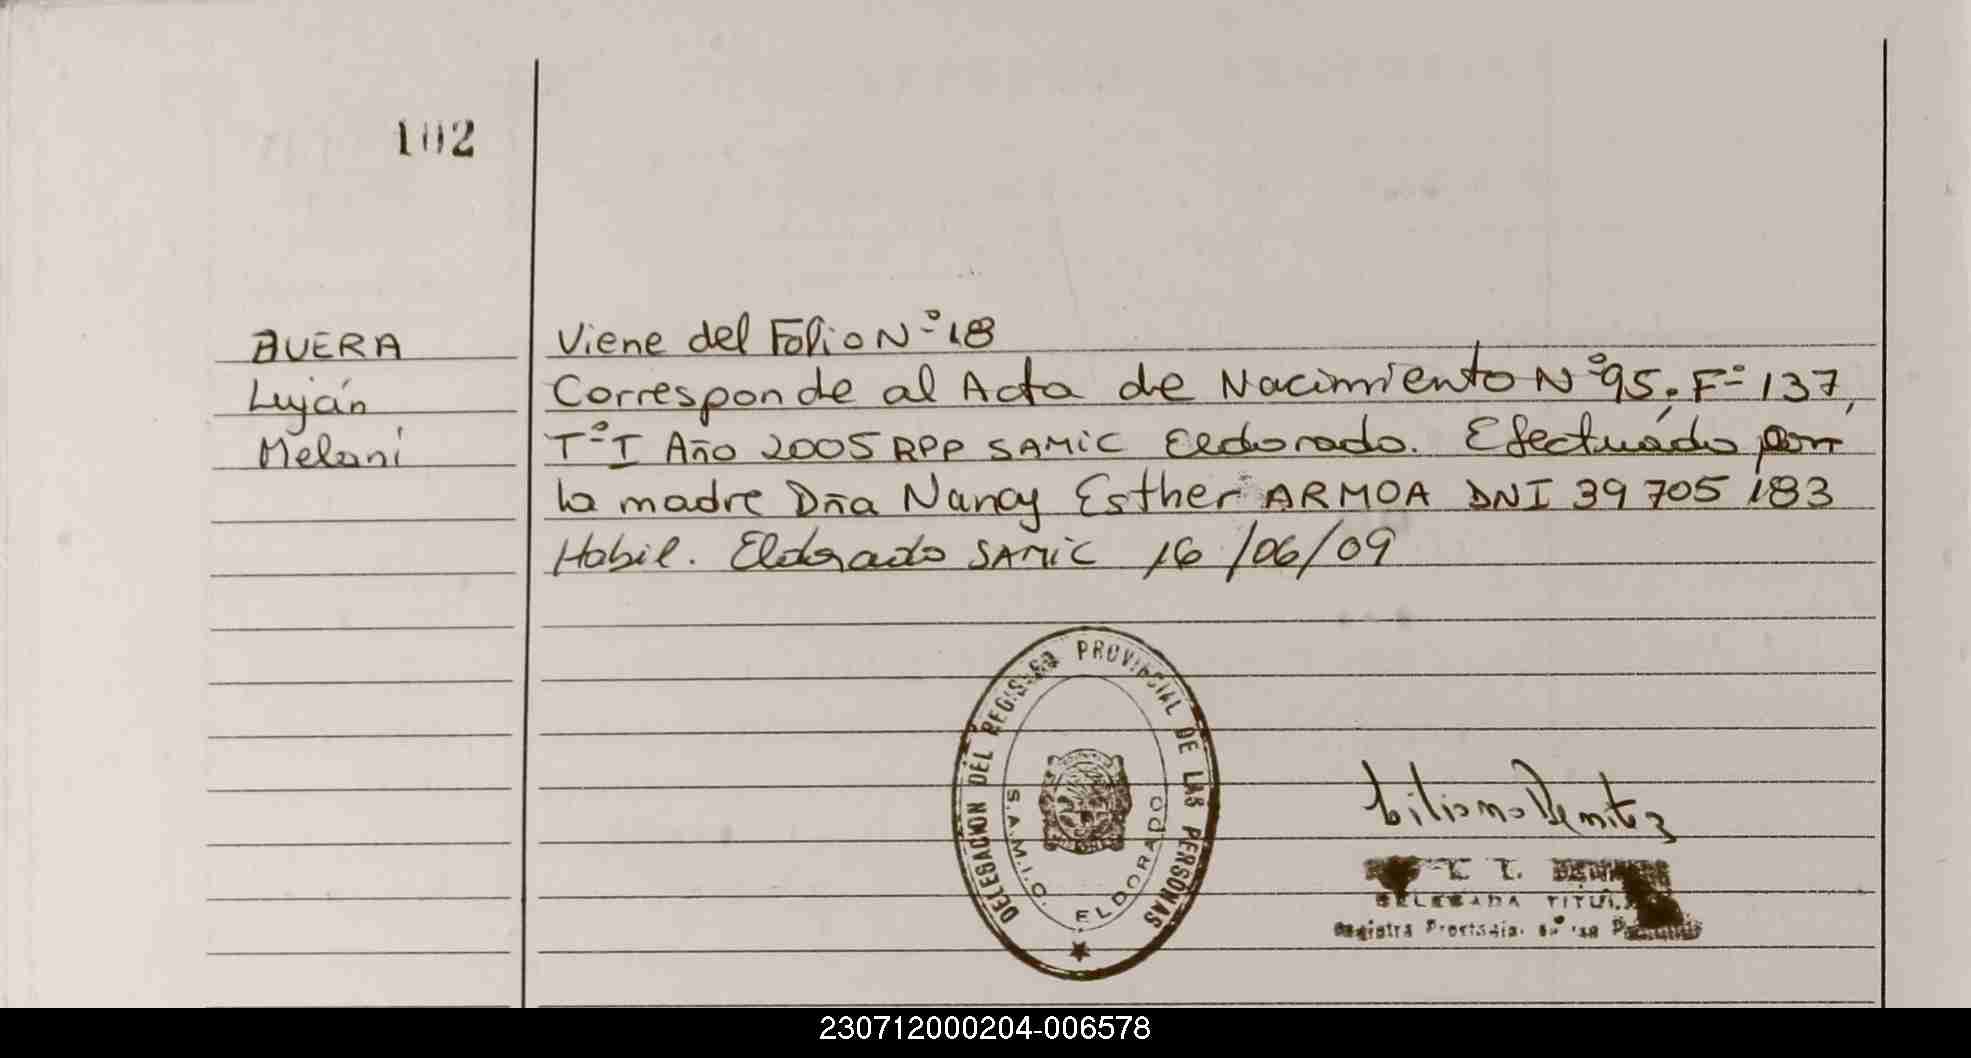 102
BUERA
Luján
Melani
Viene del Folio Nº 18
Corresponde al Acta de Nacimiento Nº 95. Fº 137,
Tº I Año 2005 RPP SAMIC Eldorado. Efectuádo por
la madre Dña Nancy Esther ARMOA DNI 39 705 183
Habil. Eldorado SAMIC 16/06/09
DELEGACION DEL REGISTRO PROVINCIAL DE LAS PERSONAS
S.A.M.I.C. ELDORADO
Liliana Benitez
DELEGADA TITULAR
Registro Provincial de las Personas
230712000204-006578